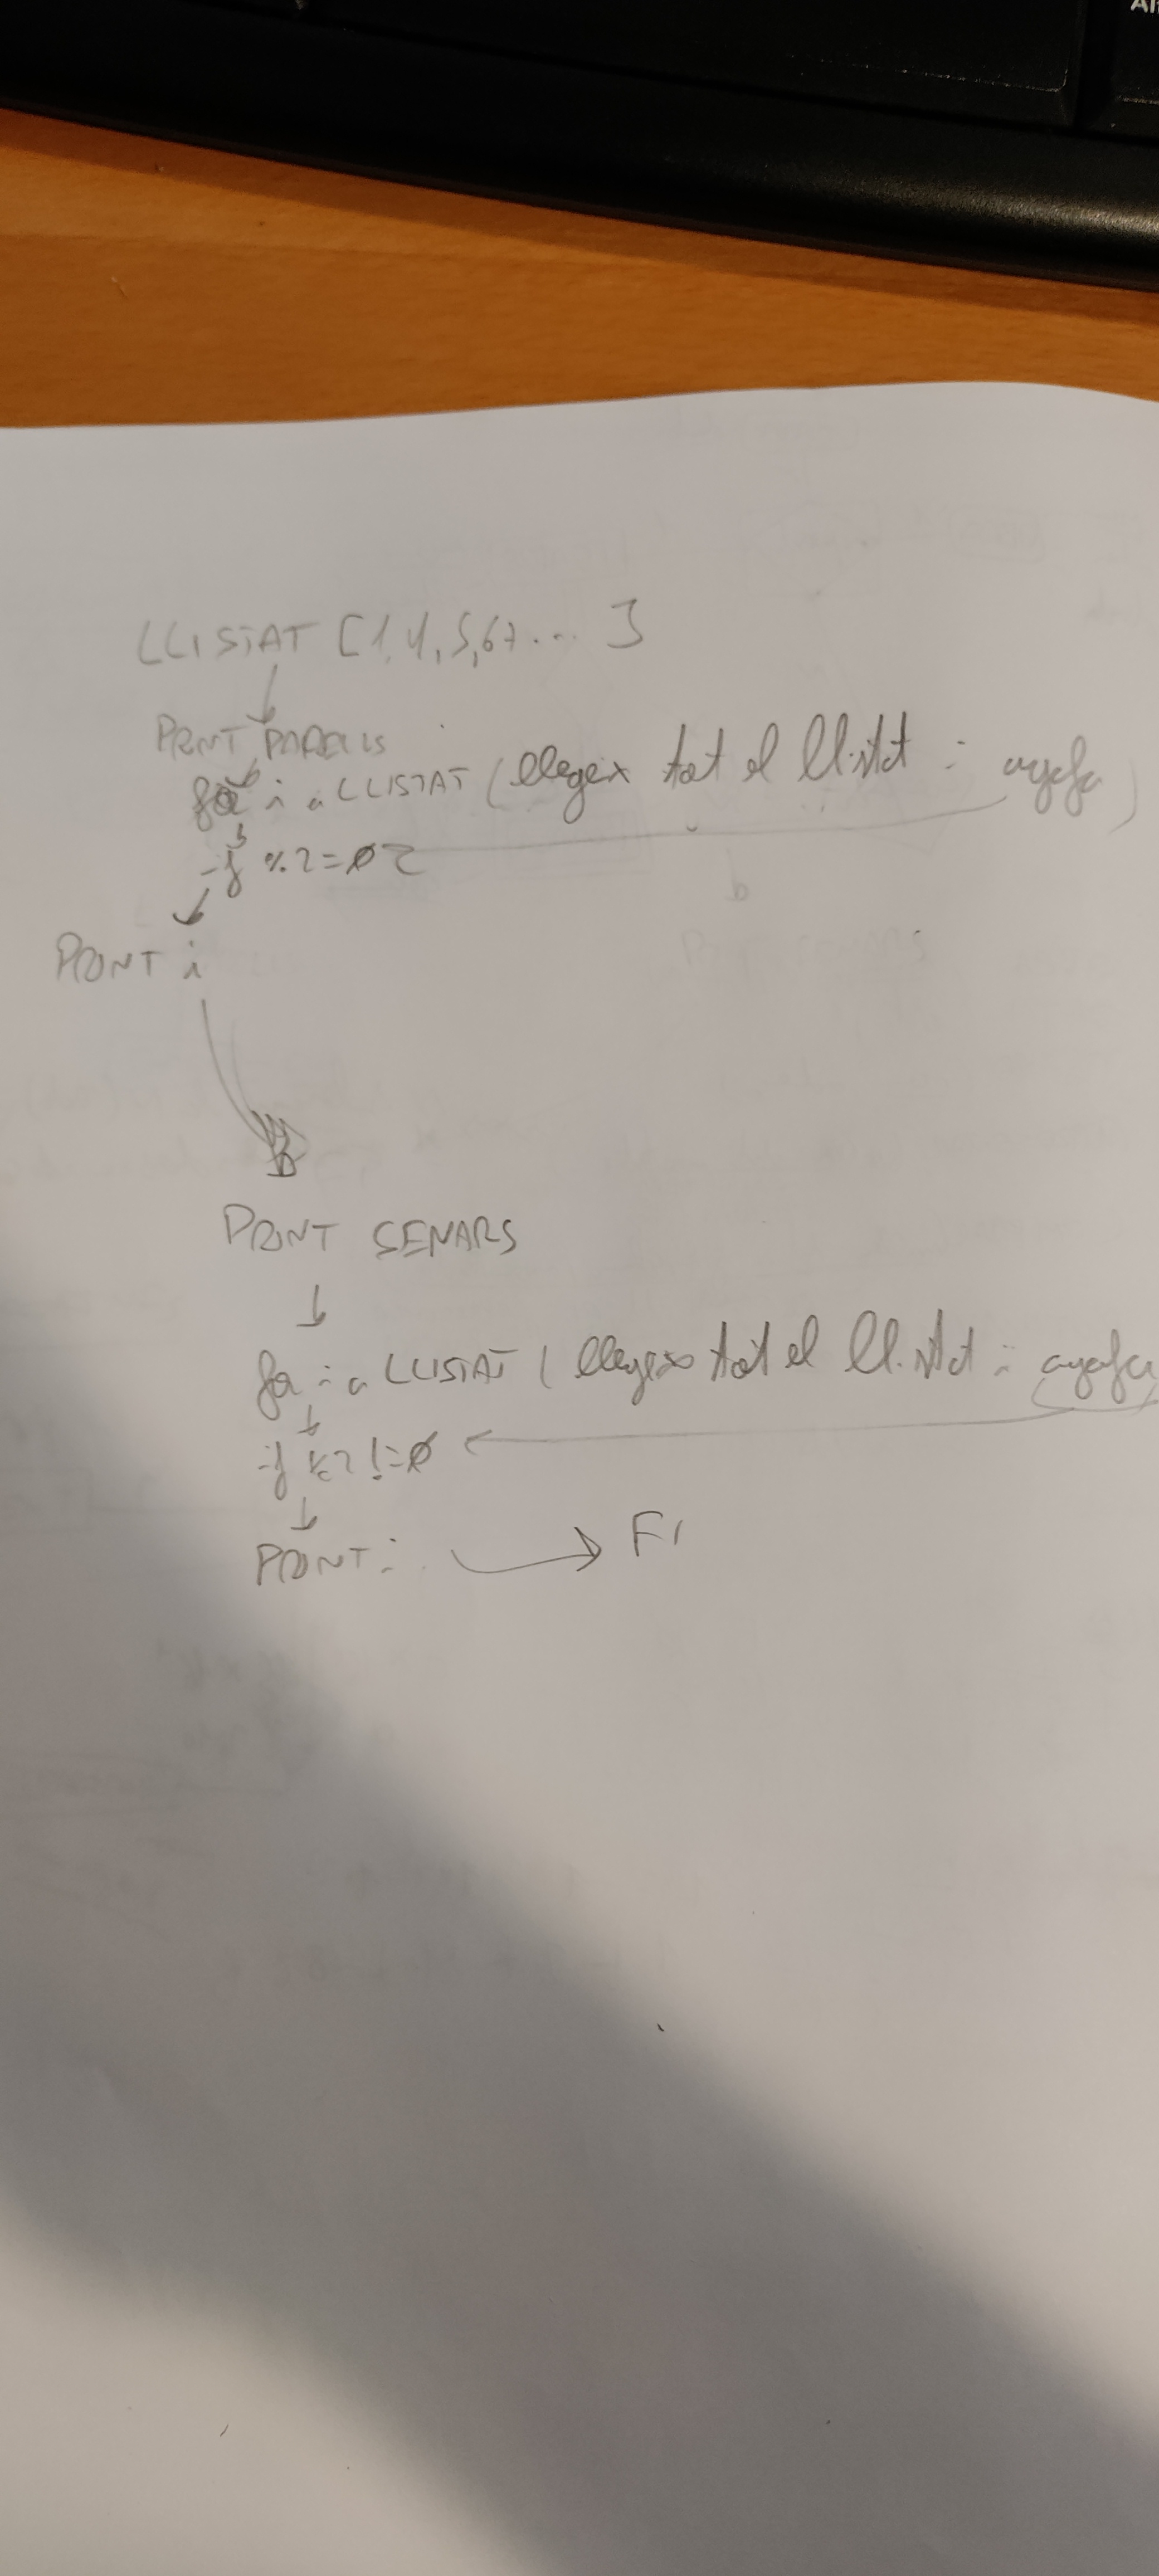 LLISTAT [1,4,5,67... ]
PRINT PARELLS
for i a LLISTAT (llegeix tot el llistat i agafa)
if %2=0
PRINT i
PRINT SENARS
for i a LLISTAT (llegeix tot el llistat i agafa
if %2!=0
PRINT i
FI